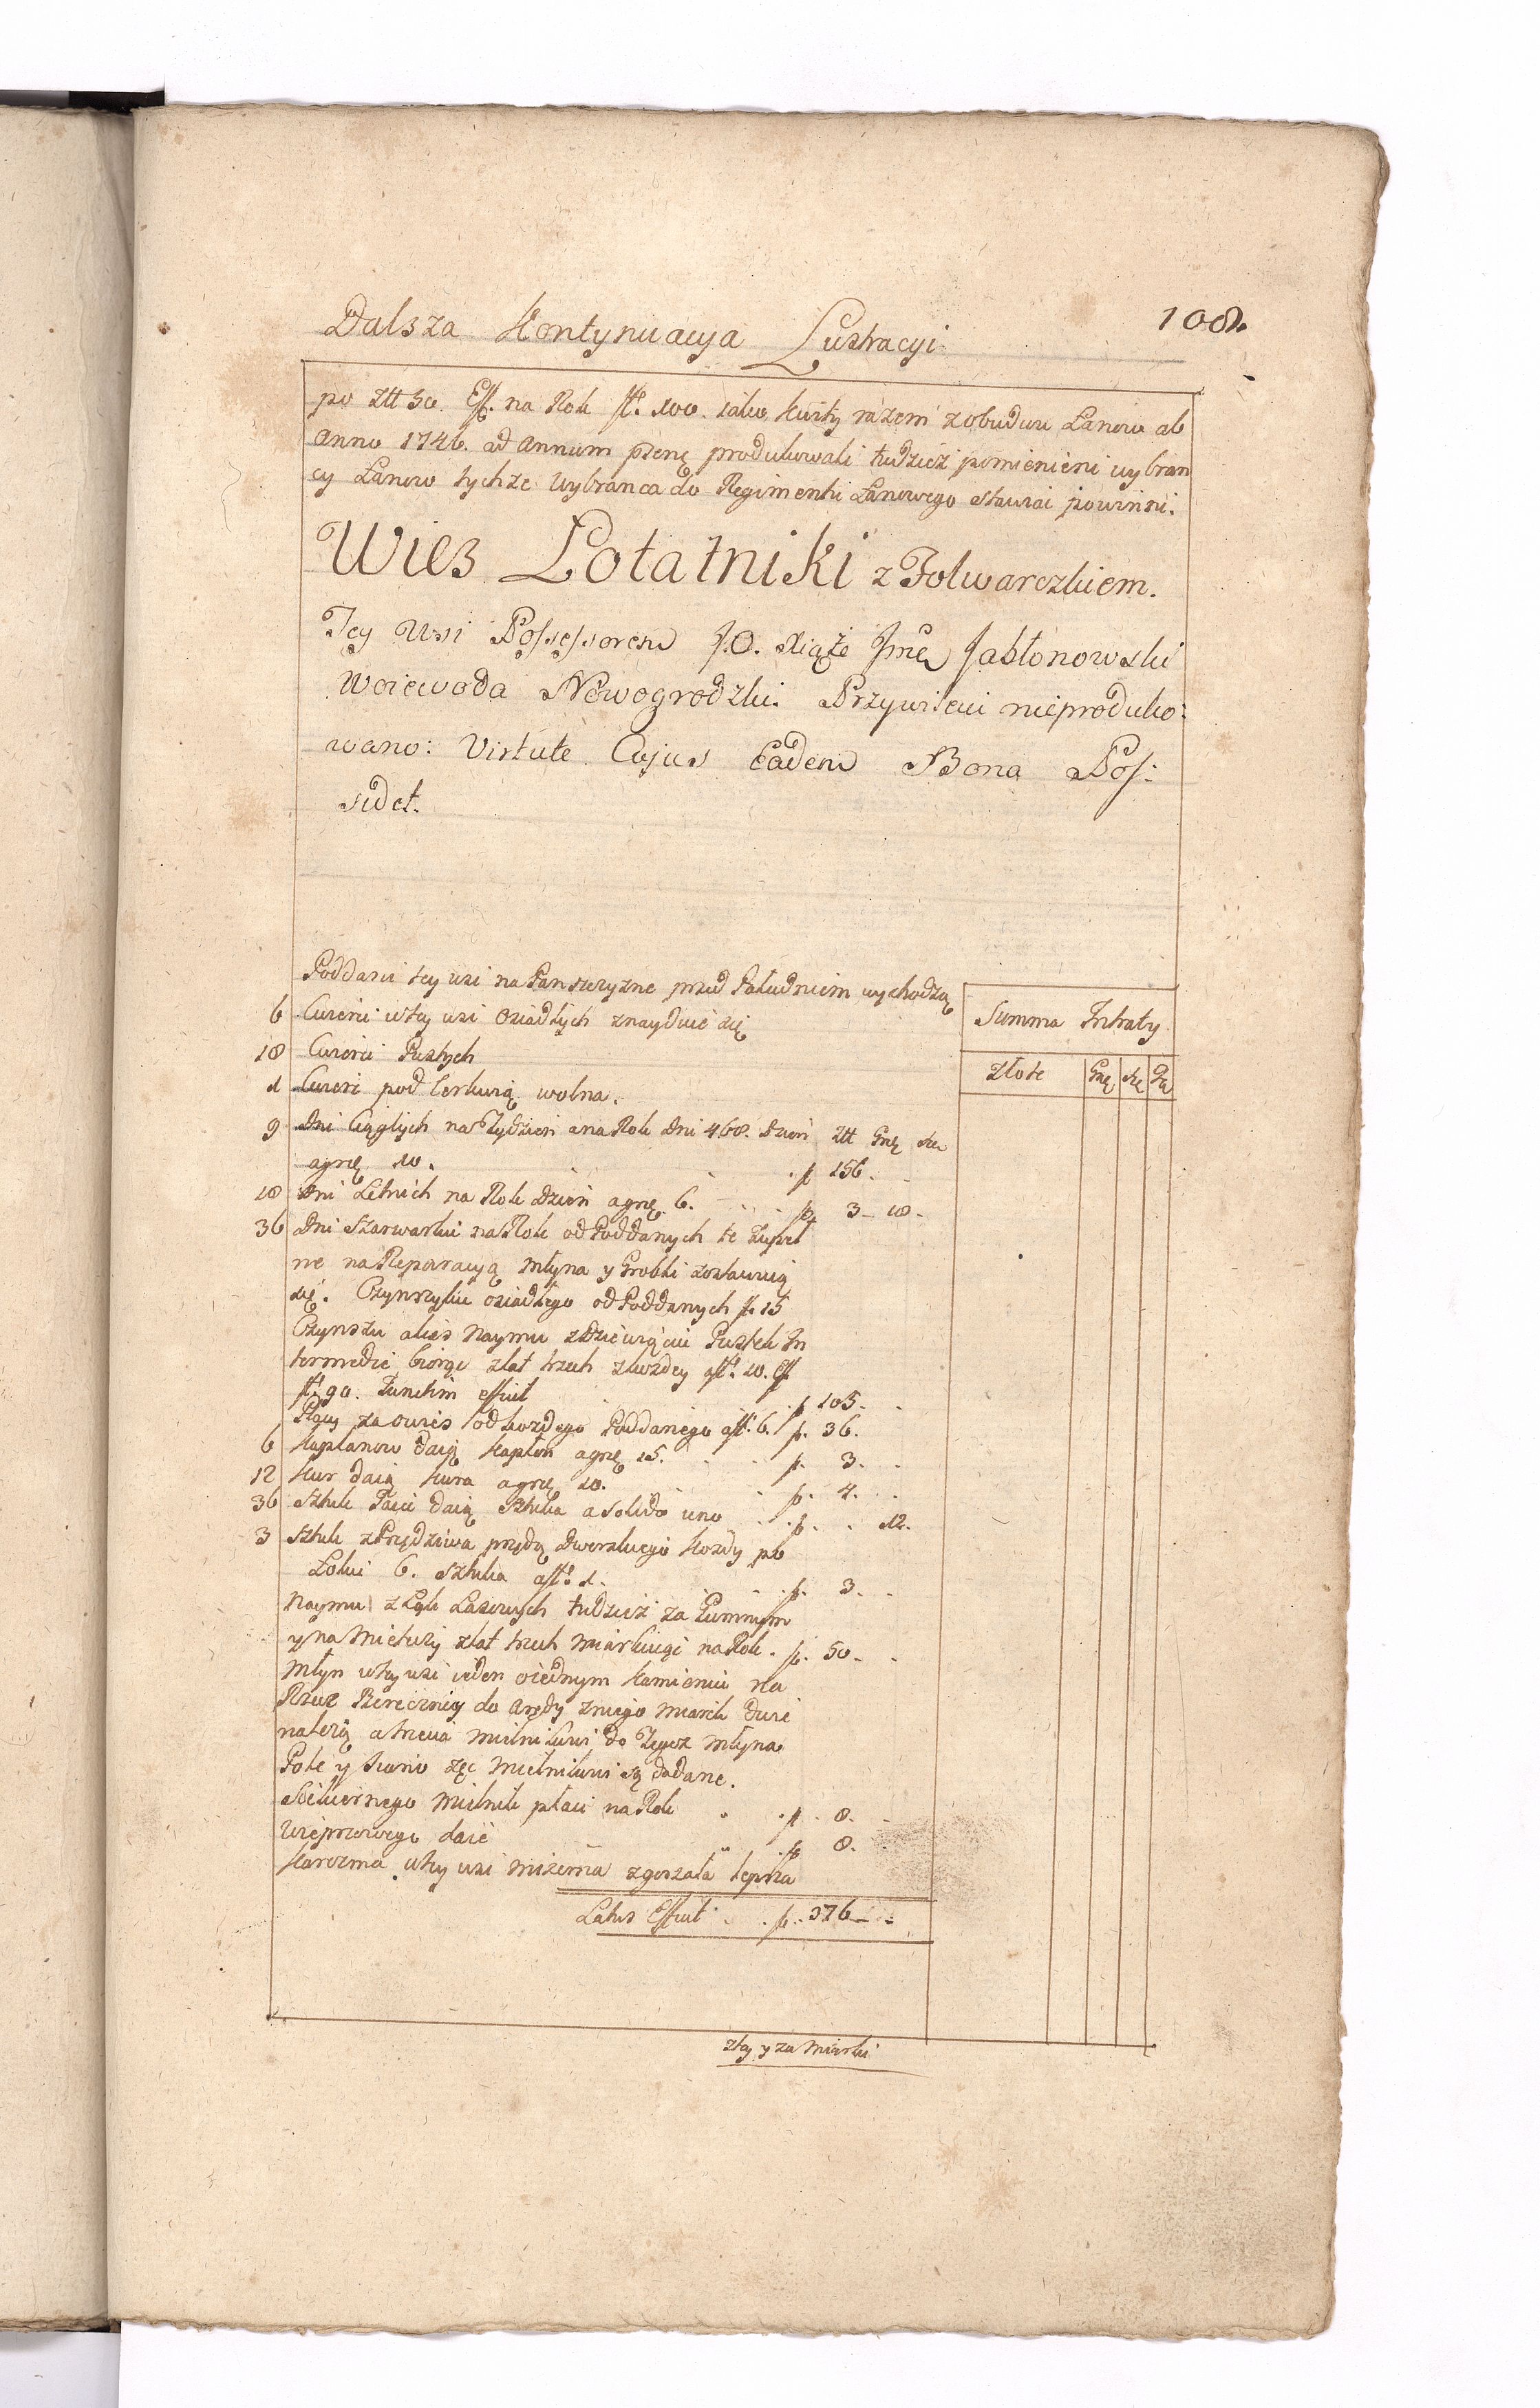 Dalsza Kontynuacya Lustracyi 108.
po złł 50. Eff. na Rok fl. 100. iako kwity razem z obudwu Łanow ab
Anno 1746. ad Annum psenę produkowali tudziez pomienieni wybran
cy Łanow tychze Wybranca do Regimentu Łanowego stawiać powinni.
Wies Lotatniki z Folwarczkiem.
Tey Wsi Possessorem J.O. Xiąże Jmę Jabłonowski
Woiewoda Nowogrodzki. Przywileiu nieproduko:
wano: Virtute Cujus Eadem Bona Pos:
sidet.
Poddani tey wsi na Panszczyzne przed Południem wychodzą
Summa Intraty
Złote Grę Sze Dę
6 Cwierci w tey wsi Osiadłych znayduie się
18 Cwierci Pustych
1 Cwierć pod Cerkwią wolna.
9 Dni Ciągłych na Tydzień a na Rok Dni 468. Dzień złł Grę Sze
a grę 10. f 156.
18 Dni Letnich na Rok Dzień a grę 6. f. 3 - 18 -
36 Dni Szarwarku na Rok od Poddanych te zupeł
ne na Reperacyą Młyna y Grobli zostawuią
się. Czynszyku osiadłego od Poddanych f. 15
Czynszu alias Naymu z Dziewiąciu Pustek In
termedie biorąc z lat trzech z kozdey a fl. 10. Eff
fl. 90. Junctim efficit f 105.
Płacą za owies od kozdego Poddanego a fl. 6. f. 36.
6 Kapłanow daią Kapłon a grę 15. f. 3.
12 Kur daią Kura a grę 10. f. 4.
36 Sztuk Jaiec daią Sztuka a solido uno f. 12.
3 Sztuk z Przędziwa przędą Dworskiego kozdy po
Łokci 6. Sztuka a fl. 1. f. 3.
Naymu z Łąk Lasowych tudziez za Gumnym
y na z lat trzech miarkuiąc na Rok. f. 50.
Młyn w tey wsi ieden o iednym Kamieniu na
Rzece do Arędy z niego miarek dwie
nalezą a trzecia Mielnikowi do Tegoz Młyna
Pole y Siano zęc Mielnikowi są dodane.
Siekiernego Mielnik płaci na Rok f. 8.
Wieprzowego daie f. 8.
Karczma w tey wsi mizerna zgorzała lepsza
Latus Efficit f. 376.
zły y za Miarki